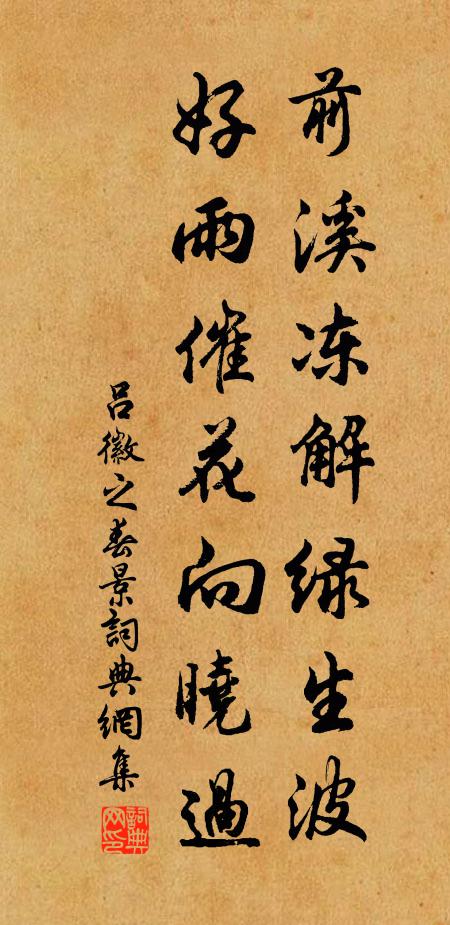 前溪冻解绿生波
好雨催花向曉過
吕徽之春景詞典網集
詞典網印